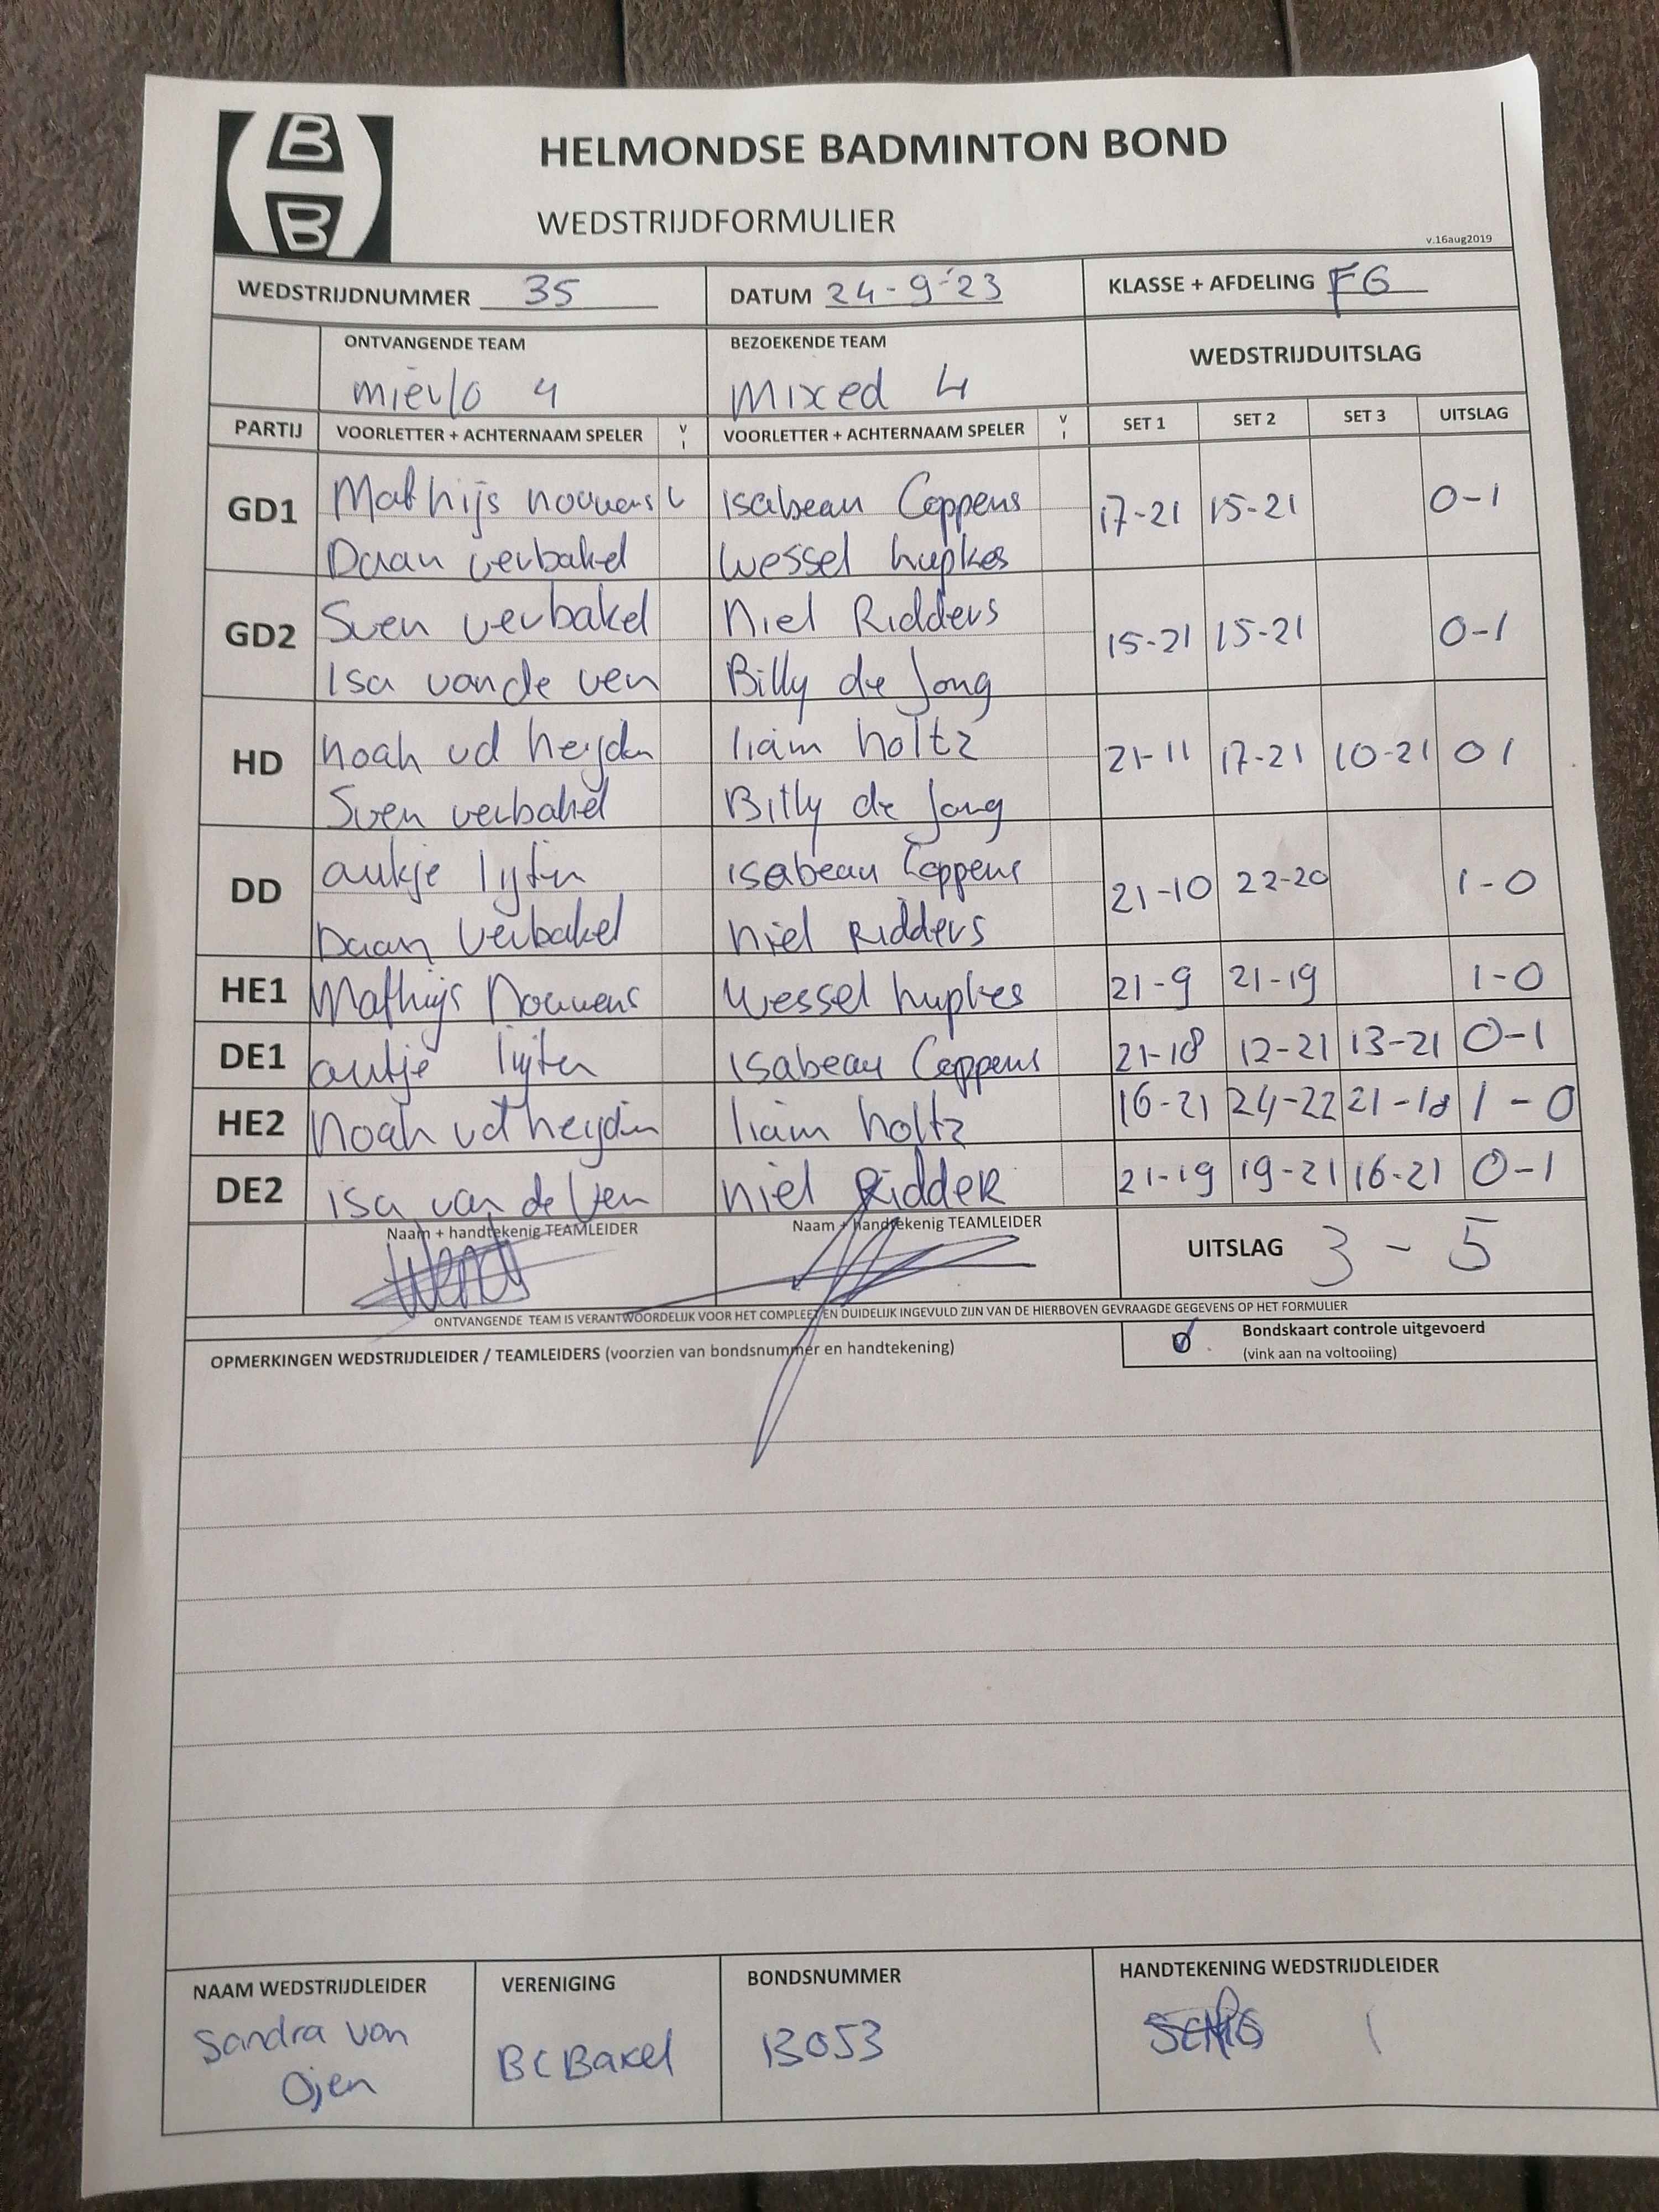 B
B
HELMONDSE BADMINTON BOND
WEDSTRIJDFORMULIER
v.16aug2019
WEDSTRIJDNUMMER 35 DATUM 24-9-'23 KLASSE + AFDELING FG
ONTVANGENDE TEAM BEZOEKENDE TEAM WEDSTRIJDUITSLAG
mierlo 4 Mixed 4
PARTIJ VOORLETTER + ACHTERNAAM SPELER V I VOORLETTER + ACHTERNAAM SPELER V I SET 1 SET 2 SET 3 UITSLAG
GD1 Mathijs nouwens Isabeau Coppens 17-21 15-21 0-1
Daan verbakel Wessel hupkes
GD2 Sven verbakel Niel Ridders 15-21 15-21 0-1
Isa van de ven Billy de Jong
HD noah vd heyden liam holtz 21-11 17-21 10-21 0 1
Sven verbakel Billy de Jong
DD aukje lijten Isabeau Coppens 21-10 22-20 1-0
Daan verbakel niel Ridders
HE1 Mathijs Nouwens Wessel hupkes 21-9 21-19 1-0
DE1 aukje lijten Isabeau Coppens 21-18 12-21 13-21 0-1
HE2 Noah vd heyden liam holtz 16-21 24-22 21-18 1-0
DE2 isa van de Ven niel RiddeR 21-19 19-21 16-21 0-1
Naam + handtekenig TEAMLEIDER Naam + handtekenig TEAMLEIDER UITSLAG 3 - 5
ONTVANGENDE TEAM IS VERANTWOORDELIJK VOOR HET COMPLEET EN DUIDELIJK INGEVULD ZIJN VAN DE HIERBOVEN GEVRAAGDE GEGEVENS OP HET FORMULIER
OPMERKINGEN WEDSTRIJDLEIDER / TEAMLEIDERS (voorzien van bondsnummer en handtekening)
Bondskaart controle uitgevoerd
(vink aan na voltooiing)
NAAM WEDSTRIJDLEIDER VERENIGING BONDSNUMMER HANDTEKENING WEDSTRIJDLEIDER
Sandra van BC Bakel 13053
Ojen